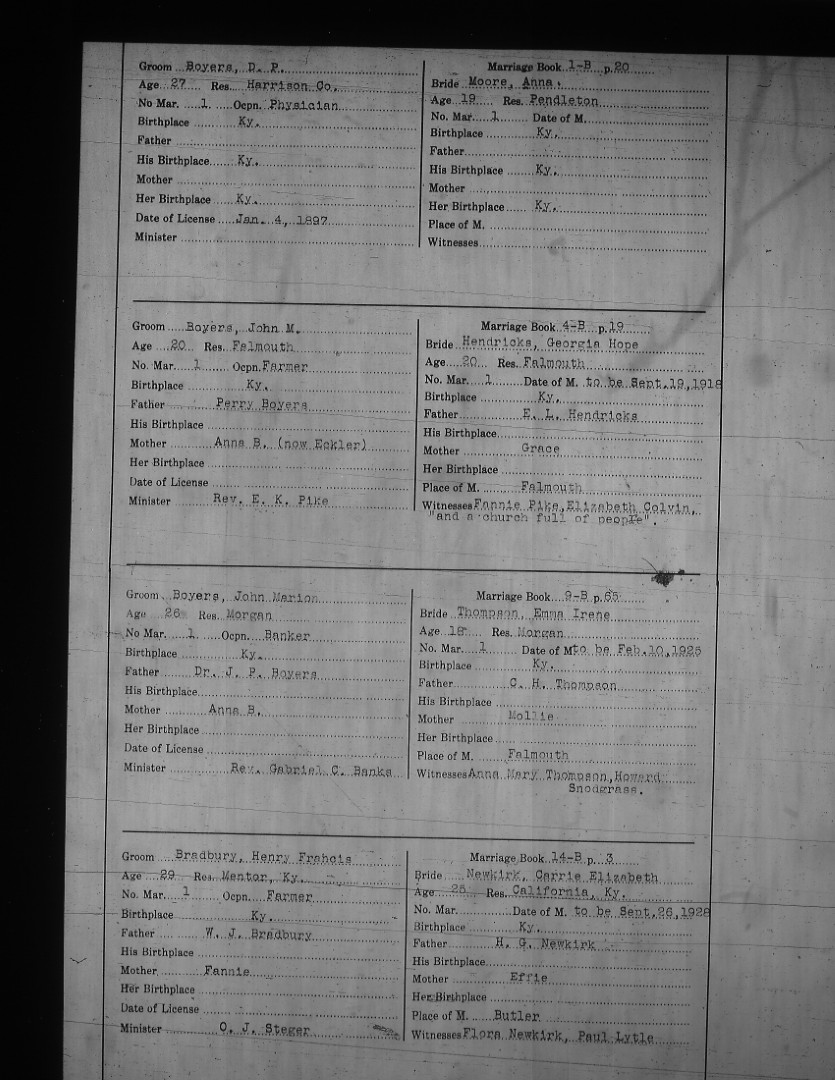 Groom Boyers, D. P.
Age 27 Res. Harrison Co.
No Mar. 1. Ocpn. Physician
Birthplace Ky.
Father
His Birthplace Ky.
Mother
Her Birthplace Ky.
Date of License Jan. 4, 1897
Minister
Marriage Book 1-B p. 20
Bride Moore, Anna.
Age 19 Res. Pendleton
No. Mar. 1 Date of M.
Birthplace Ky.
Father
His Birthplace Ky.
Mother
Her Birthplace Ky.
Place of M.
Witnesses
Groom Boyers, John M.
Age 20 Res. Falmouth
No. Mar. 1 Ocpn. Farmer
Birthplace Ky.
Father Perry Boyers
His Birthplace
Mother Anna B. (now Eckler)
Her Birthplace
Date of License
Minister Rev. E. K. Pike
Marriage Book 4-B p. 19
Bride Hendricks, Georgia Hope
Age 20 Res. Falmouth
No. Mar. 1 Date of M. to be Sept. 19, 1918
Birthplace Ky.
Father E. L. Hendricks
His Birthplace
Mother Grace
Her Birthplace
Place of M. Falmouth
Witnesses Fannie Pike, Elizabeth Colvin,
"and a church full of people".
Groom Boyers, John Marion
Age 26 Res. Morgan
No Mar. 1 Ocpn. Banker
Birthplace Ky.
Father Dr. J. P. Boyers
His Birthplace
Mother Anna B.
Her Birthplace
Date of License
Minister Rev. Gabriel C. Banks
Marriage Book 9-B p. 65
Bride Thompson, Emma Irene
Age 18 Res. Morgan
No. Mar. 1 Date of M to be Feb. 10, 1925
Birthplace Ky.
Father C. H. Thompson
His Birthplace
Mother Mollie
Her Birthplace
Place of M. Falmouth
Witnesses Anna Mary Thompson, Howard
Snodgrass.
Groom Bradbury, Henry Francis
Age 29 Res. Mentor, Ky.
No. Mar. 1 Ocpn. Farmer
Birthplace Ky.
Father W. J. Bradbury
His Birthplace
Mother Fannie
Her Birthplace
Date of License
Minister O. J. Steger
Marriage Book 14-B p. 3
Bride Newkirk, Carrie Elizabeth
Age 25 Res. California, Ky.
No. Mar. Date of M. to be Sept. 26, 1928
Birthplace Ky.
Father H. G. Newkirk
His Birthplace
Mother Effie
Her Birthplace
Place of M. Butler
Witnesses Flora Newkirk, Paul Lytle